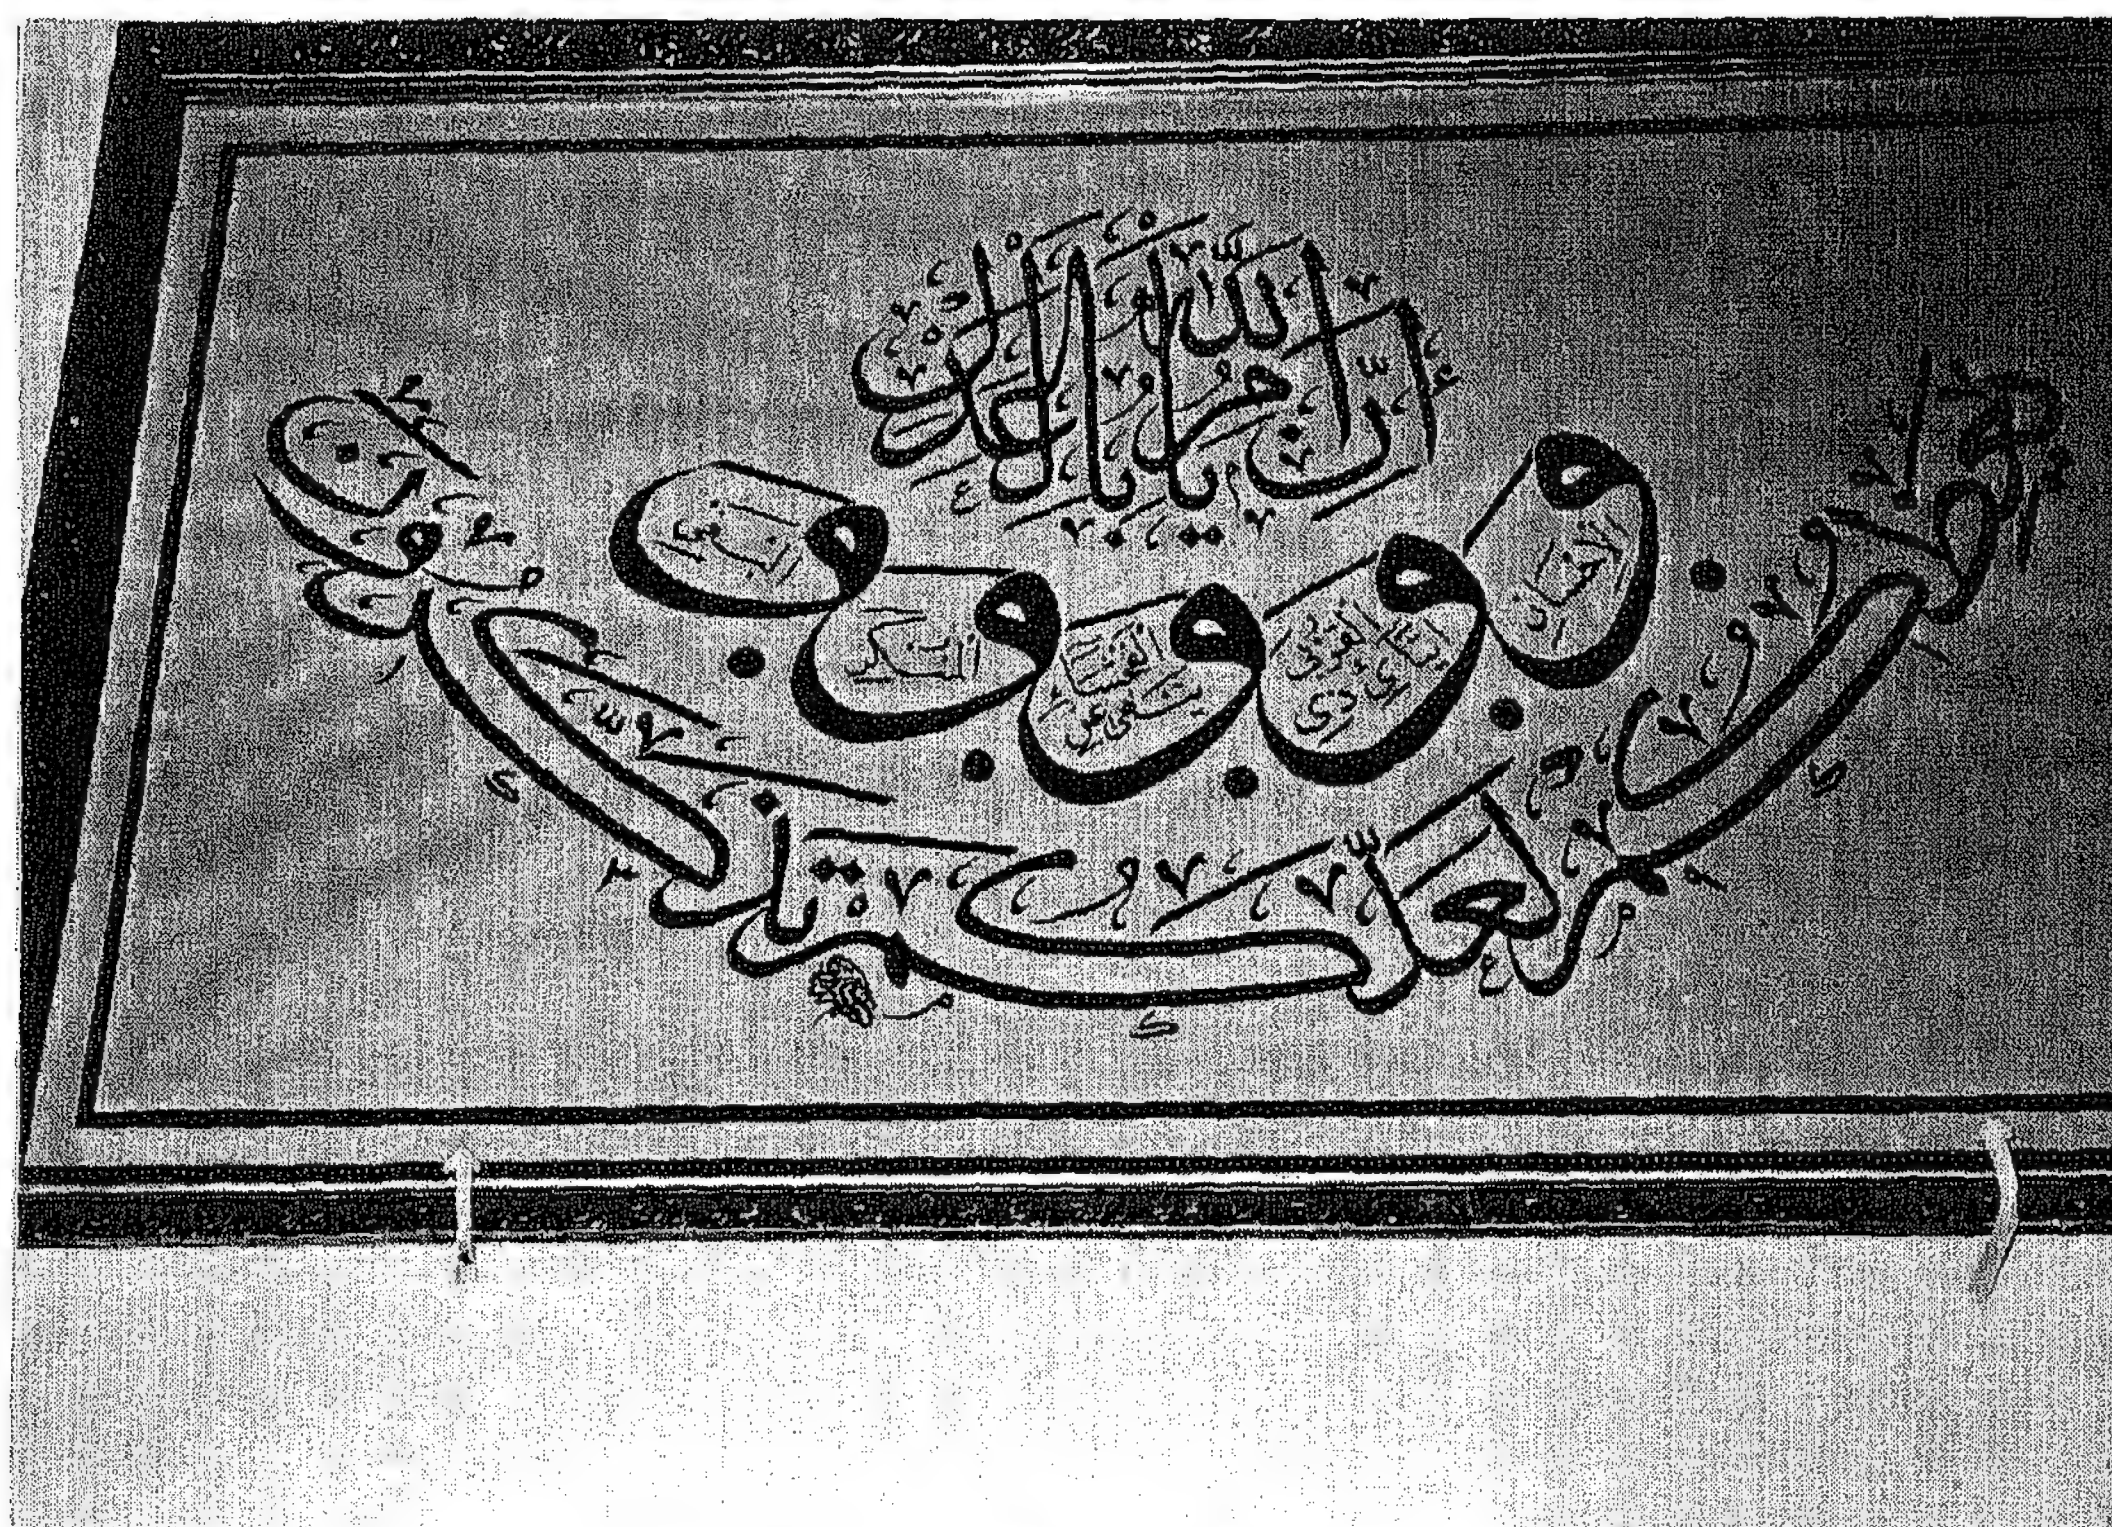 إِنَّ اللّٰهَ يَأْمُرُ بِالْعَدْلِ
وَالْإِحْسَانِ وَإِيتَاءِ ذِي الْقُرْبَى وَيَنْهَى عَنِ الْفَحْشَاءِ وَالْمُنْكَرِ وَالْبَغْيِ
يَعِظُكُمْ لَعَلَّكُمْ تَذَكَّرُونَ